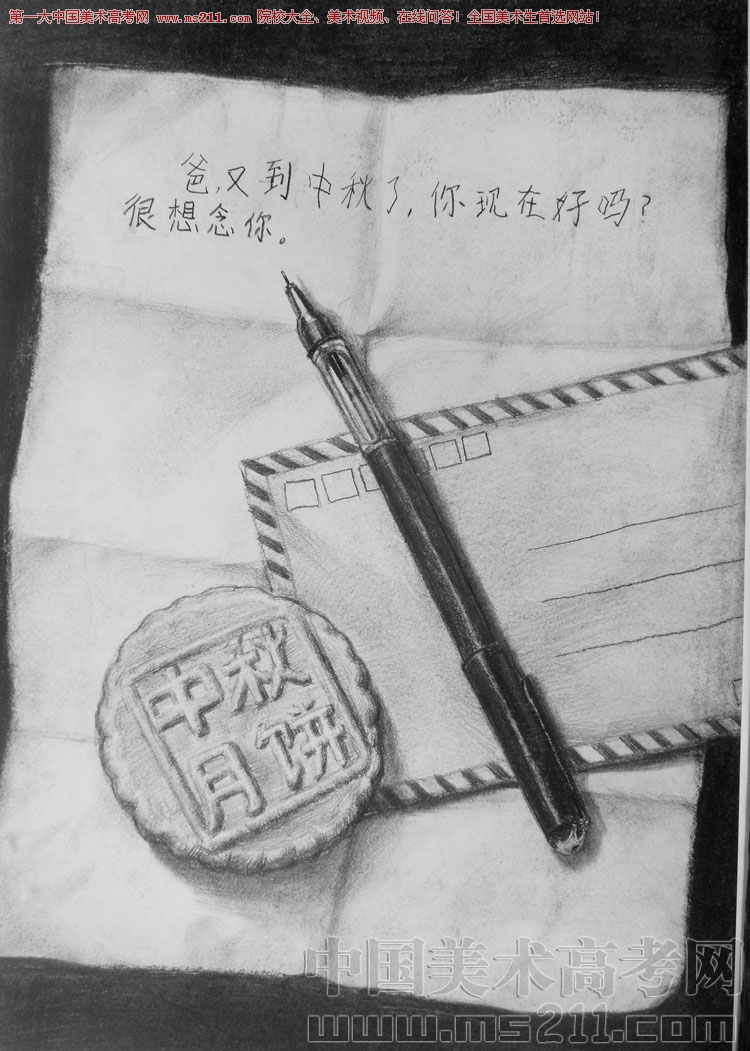 第一大中国美术高考网 www.ms211.com 院校大全、美术视频、在线问答！全国美术生首选网站！
爸,又到中秋了,你现在好吗?
很想念你。
中秋
月饼
中国美术高考网
www.ms211.com